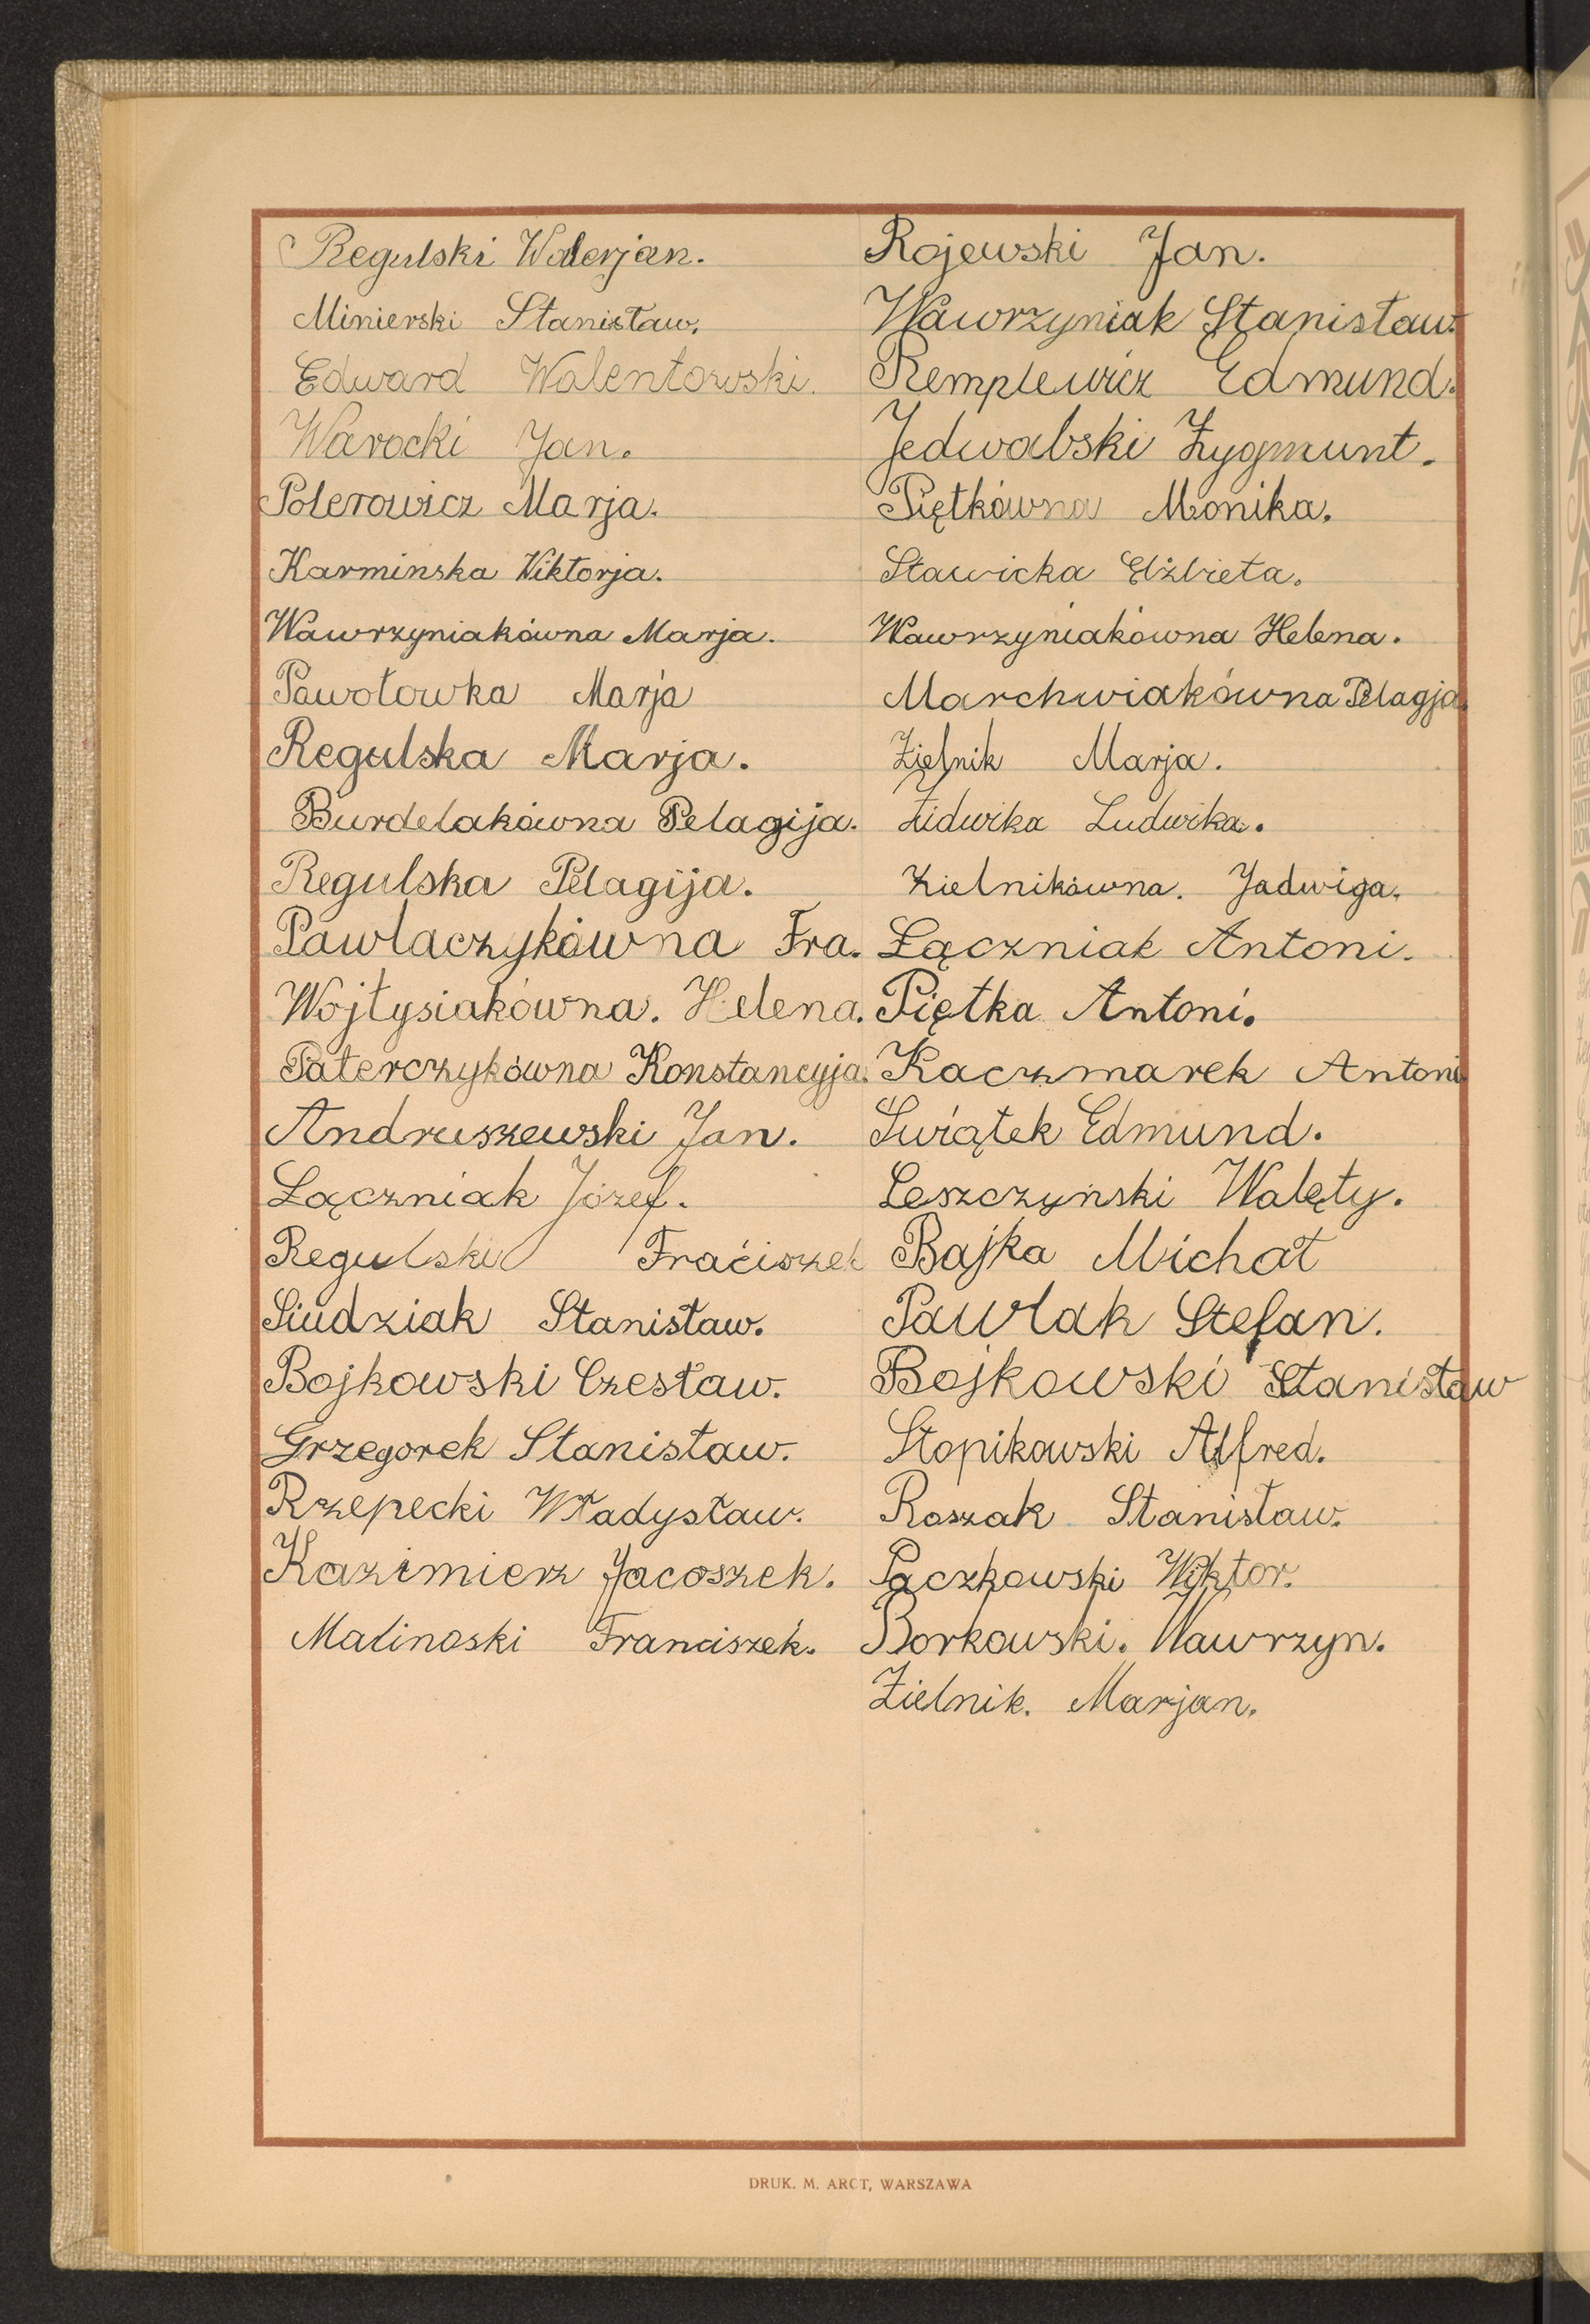 Regulski Walerjan.
Minierski Stanisław.
Edward Walentowski.
Warocki Jan.
Polerowicz Marja.
Karminska Wiktorja.
Wawrzyniakówna Marja.
Pawołowka Marja
Regulska Marja.
Burdelakówna Pelagija.
Regulska Pelagija.
Pawlaczykówna Fra.
Wojtysiakówna. Helena.
Paterczykówna Konstancyja.
Andruszewski Jan.
Łączniak Józef.
Regulski Fraciszek
Siudziak Stanisław.
Bojkowski Czesław.
Grzegorek Stanisław.
Rzepecki Władysław.
Kazimierz Jacoszek.
Malinoski Franciszek.
Rojewski Jan.
Wawrzyniak Stanisław.
Remplewicz Edmund.
Jedwabski Zygmunt.
Piętkówna Monika.
Stawicka Elżbieta.
Wawrzyniakówna Helena.
Marchwiakówna Pelagja.
Zielnik Marja.
Żidwika Ludwika.
Zielnikówna. Jadwiga.
Łączniak Antoni.
Piętka Antoni.
Kaczmarek Antoni
Świątek Edmund.
Leszczyński Walęty.
Bajka Michał
Pawlak Stefan.
Bojkowski Stanisław
Stopikowski Alfred.
Roszak Stanisław.
Paczkowski Wiktor.
Borkowski. Wawrzyn.
Zielnik. Marjan.
DRUK. M. ARCT, WARSZAWA